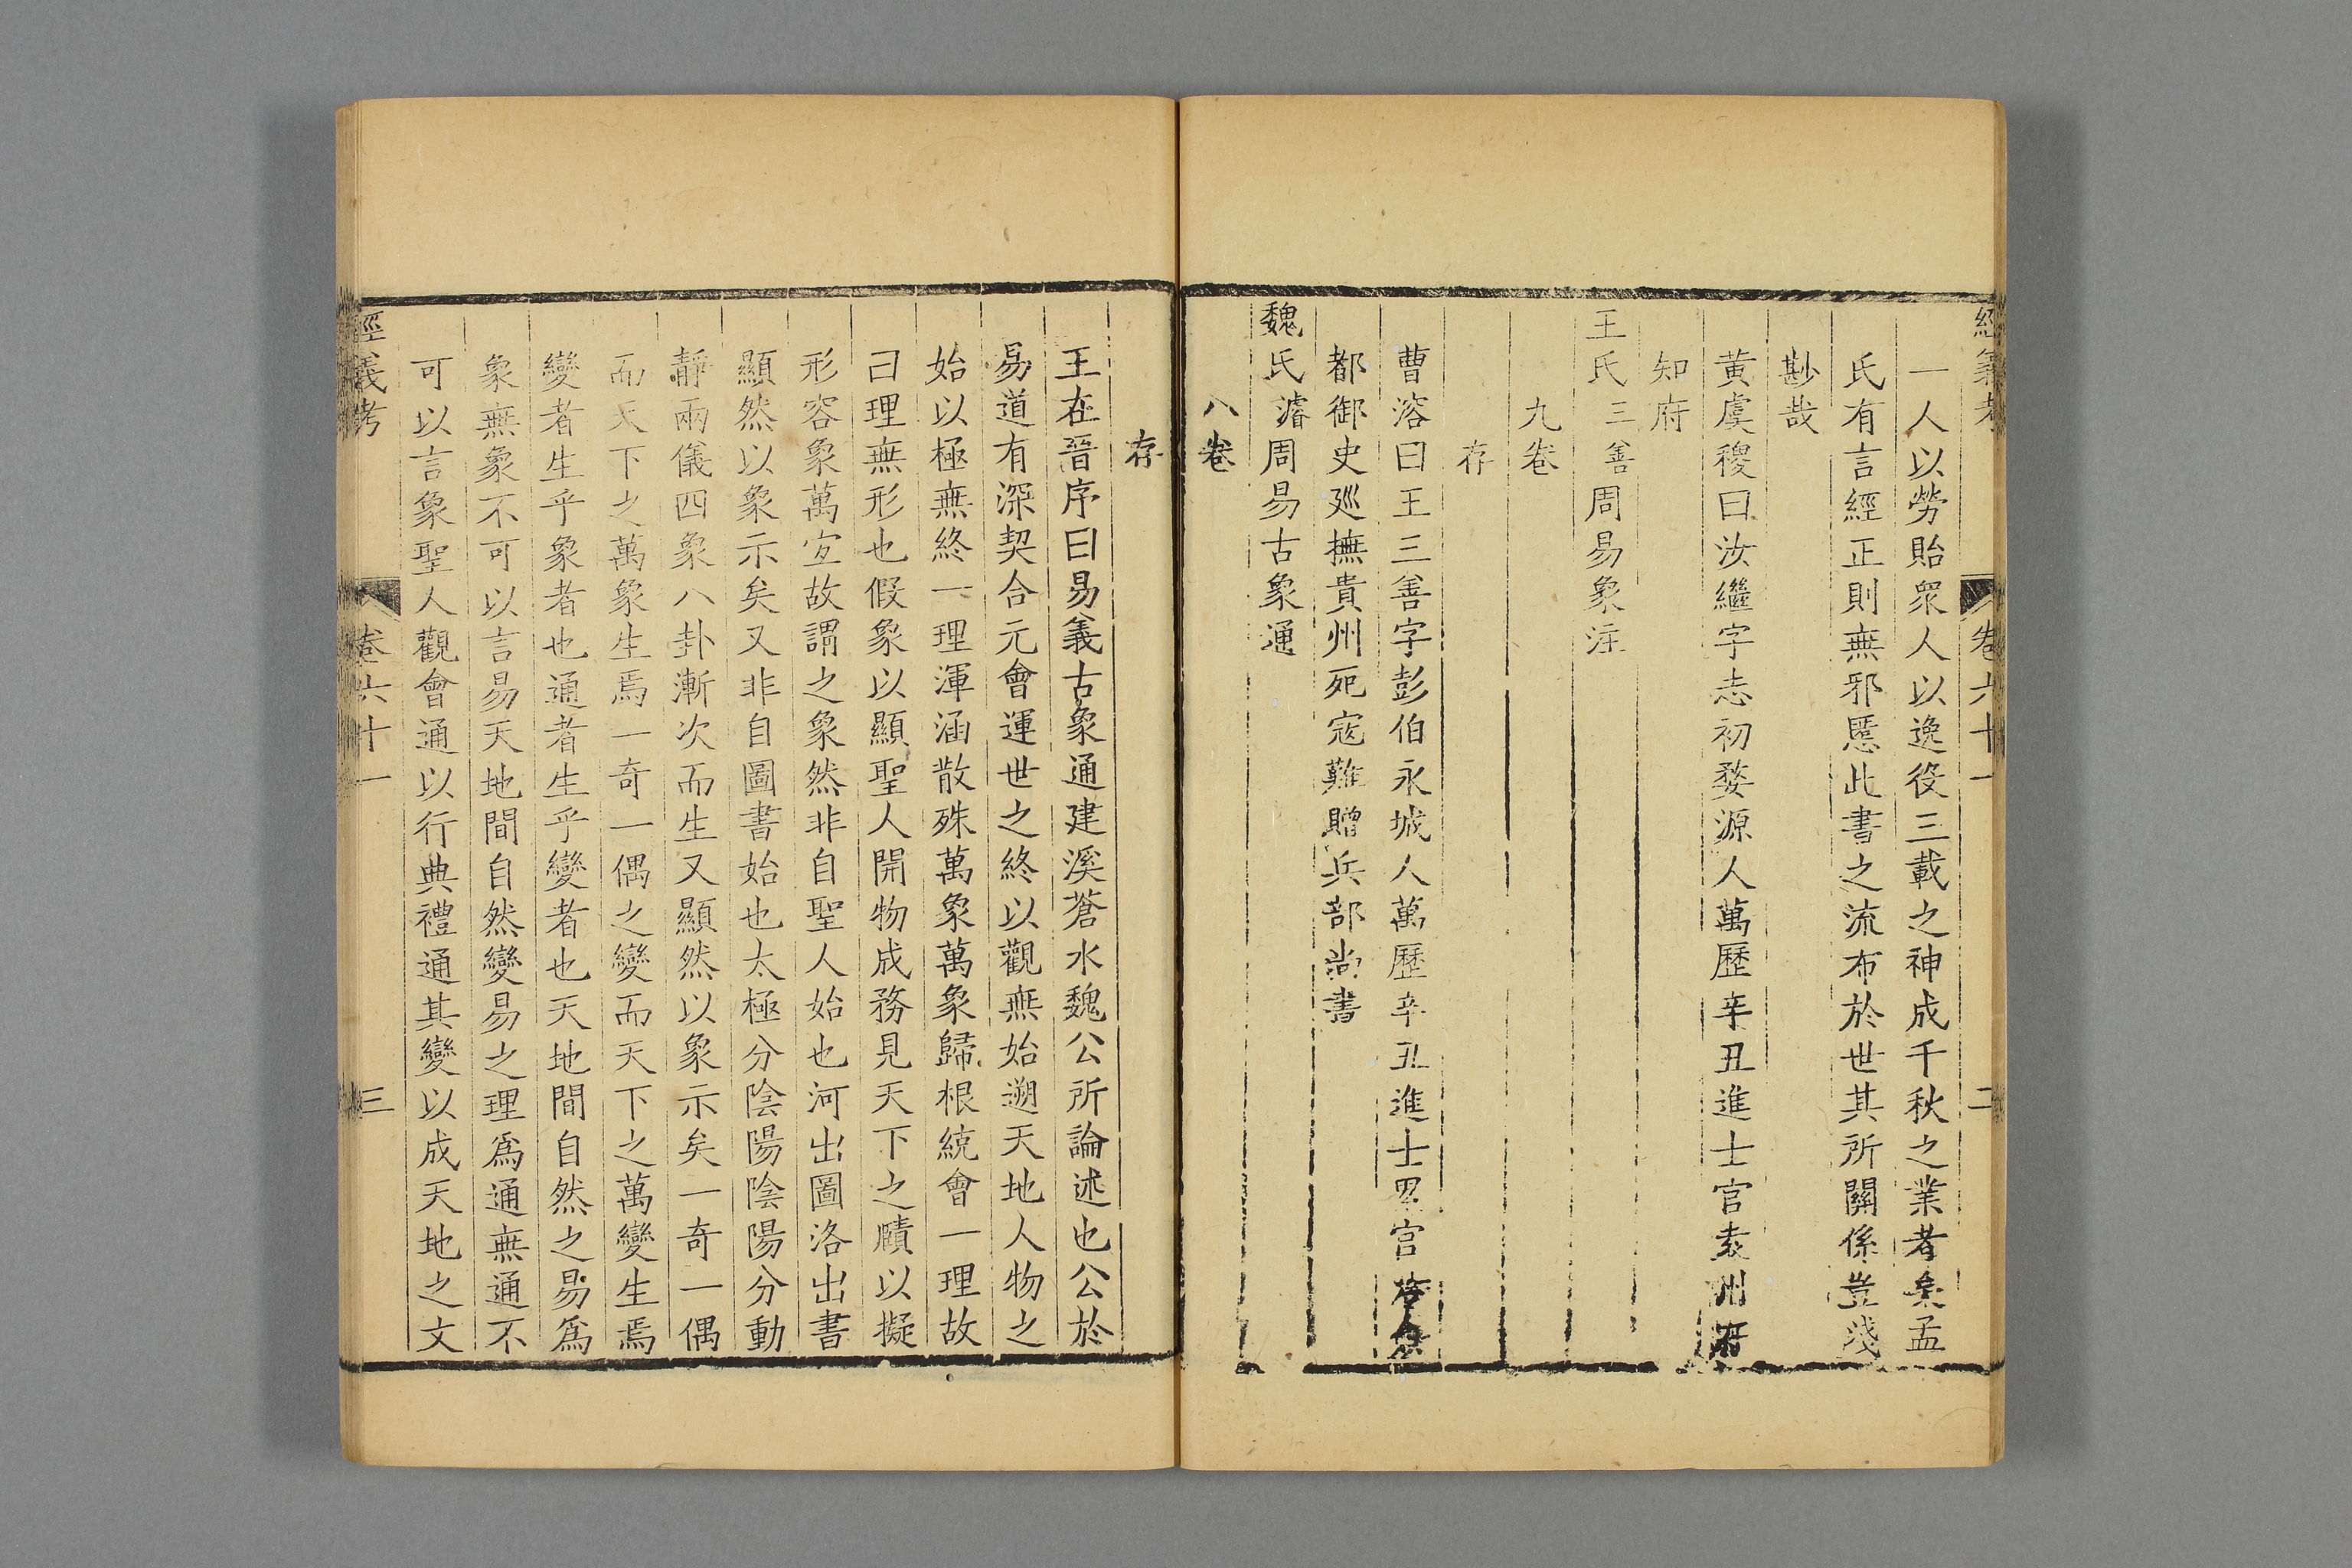 經義考 卷六十一 二
一人以勞貽衆人以逸役三載之神成千秋之業者矣孟
氏有言經正則無邪慝此書之流布於世其所關係豈淺
尠哉
黃虞稷曰汝繼字志初婺源人萬歷辛丑進士官袁州府
知府
王氏三善周易象注
九卷
存
曹溶曰王三善字彭伯永城人萬歷辛丑進士累官
都御史廵撫貴州死寇難贈兵部尚書
魏氏濬周易古象通
八卷
存
王在晉序曰易義古象通建溪蒼水魏公所論述也公於
易道有深契合元會運世之終以觀無始遡天地人物之
始以極無終一理渾涵散殊萬象萬象歸根統會一理故
曰理無形也假象以顯聖人開物成務見天下之賾以擬
形容象萬宜故謂之象然非自聖人始也河出圖洛出書
顯然以象示矣又非自圖書始也太極分陰陽陰陽分動
靜兩儀四象八卦漸次而生又顯然以象示矣一奇一偶
而天下之萬象生焉一奇一偶之變而天下之萬變生焉
變者生乎象者也通者生乎變者也天地間自然之易爲
象無象不可以言易天地間自然變易之理爲通無通不
可以言象聖人觀會通以行典禮通其變以成天地之文
經義考 卷六十一 三